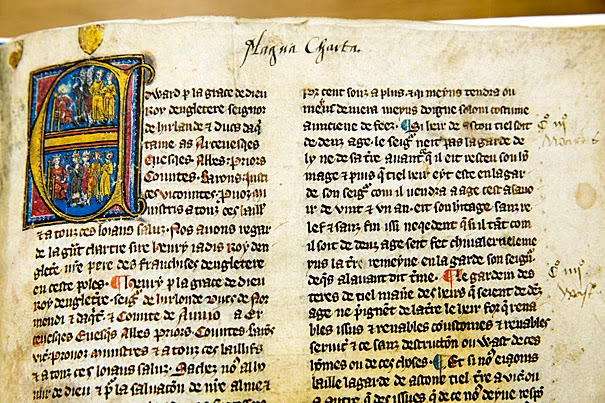 Magna Charta.
Edward p la grace de dieu
Roy dengletere seignor
de hirlande & Ducs daq
taine as Arcevesqes
Evesqes Abbes Priors
Countes Barons Justi
ces viscountes Pvoz mi
nistris a touz ces baill
& a touz ces loiaus saluz. Nos avons regar
de la gnt chartre sire henry iadis Roy den
gletre nre pere des franchises dengletere
en ceste poles. Henry p la grace de Dieu
Roy dengletre. seigr de hirlonde Ducs de Nor
mendi & daqt & Comte de Anjio a Er
cevesqes Evesqs Abbes Priors Countes Barons
vic Provoz ministres & a touz ces baillifs
& a touz ces loiaus saluz. Sachez nos al
de Dieu & p la salvacion de nre alme &
por cent souz a plus. & qi meyns tendra ou
meins devera meyns doigne solom costume
aunciene de feez. Si leir de ascon tiel soit
de deez age. le seigr neit pas la garde de
ly ne de sa tre avant q il eit resceu son ho
mage & puis q tiel heir eyt este en la gar
de son seigr com il vendra a age cest a savo
ir de vint & un an. eit son hitage. sanz re
lef & sanz fin issi neqedent q si il tant com
il soit de deez age seit fet chivaler e le me
yns la tre remeyne en la garde son seigr
deqes al avant dit tme. Le gardein des
teres de tiel mane des heirs q seient de deez
age. ne pgnent de la tre le heir for q rena
bles issus & renables coustomes & renables
servic & ce sanz destruccion ou wast de ces
homes ou de ces choses. Et si nos eioms
baille la garde de ascone tiel tre a vic ou
a autre qi des issues de ce nos deyve resp